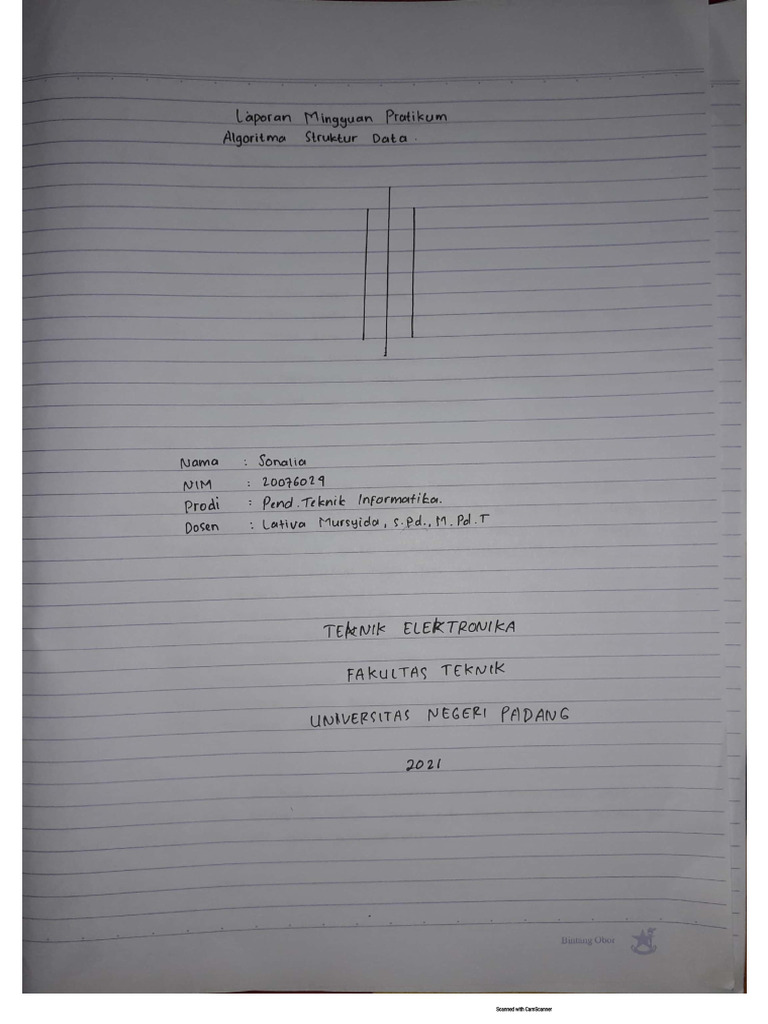 Laporan Mingguan Pratikum
Algoritma Struktur Data.
Nama : Sonalia
NIM : 20076029
Prodi : Pend. Teknik Informatika.
Dosen : Lativa Mursyida, S.Pd., M.Pd.T
TEKNIK ELEKTRONIKA
FAKULTAS TEKNIK
UNIVERSITAS NEGERI PADANG
2021
Bintang Obor
Scanned with CamScanner